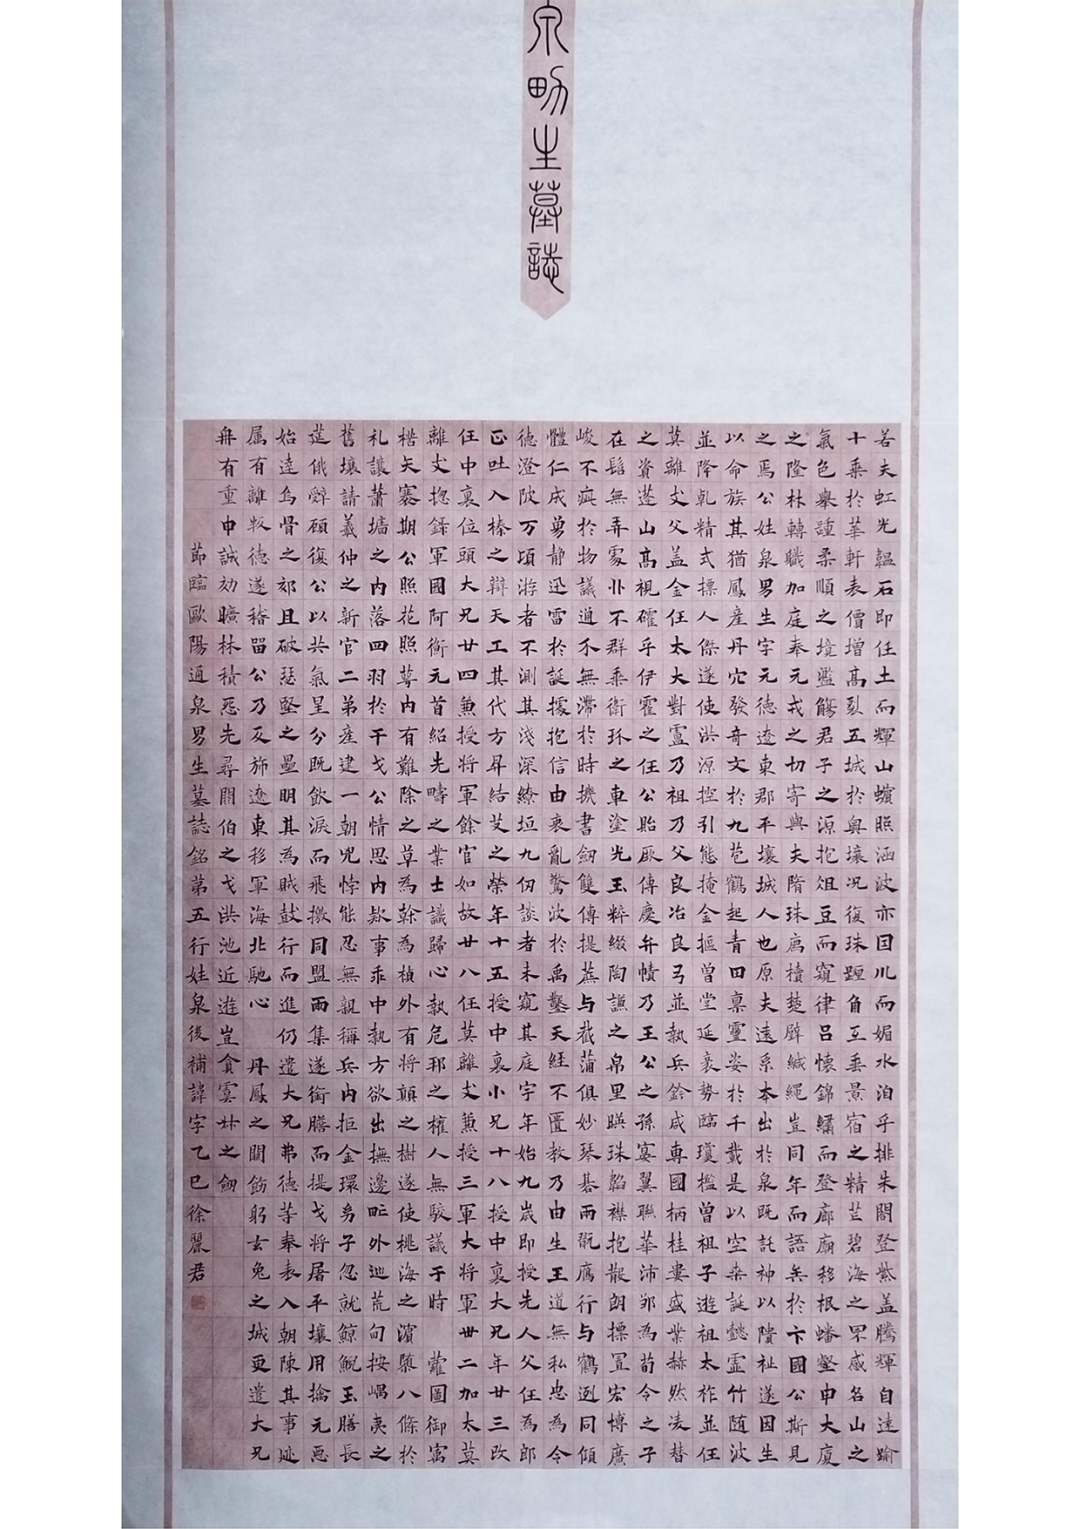 泉男生墓誌
若夫虹光韞石即任土而輝山蠙照涵波亦因川而媚水洎乎排朱閣登紫盖騰輝自遠踰
十乘於華軒表價增高裂五城於奥壤况復珠躔角互垂景宿之精芒碧海之罘感名山之
氣色舉踵柔順之境濫觴君子之源抱俎豆而窺律吕懷錦繡而登廊廟移根蟠壑申大廈
之隆林轉職加庭奉元戎之切寄與夫隋珠薦櫝楚璧緘繩豈同年而語矣於卞國公斯見
之焉公姓泉男生字元德遼東郡平壤城人也原夫遠系本出於泉既託神以隤祉遂因生
以命族其猶鳳產丹穴發奇文於九苞鶴起青田稟靈姿於千載是以空桑誕懿霊竹随波
並降乾精式摽人傑遂使洪源控引態掩金樞曾堂延袤勢臨瓊檻曾祖子遊祖太祚並任
莫離支父盖金任太大對盧乃祖乃父良冶良弓並執兵鈐咸專國柄桂婁盛業赫然凌替
之資蓬山高視確乎伊霍之任公貽厥傳慶弁幘乃王公之孫宴翼聯華沛邹為荀令之子
在髫無弄處丱不群乘衛玠之車塗光玉粹綴陶謙之帛里暎珠韜襟抱散朗摽置宏博廣
峻不疵於物議通無滯於時機書劒雙傳提蔗与截蒲俱妙琴碁兩翫鴈行与鶴迾同傾
體仁成勇静迅雷於誕據抱信由衷亂驚波於禹鑿天經不匱教乃由生王道無私忠為令
德澄陂万頃游者不測其淺深繚垣九仞談者未窺其庭宇年始九歲即授先人父任為郎
正吐入榛之辯天工其代方昇結艾之榮年十五授中裏小兄十八授中裏大兄年廿三改
任中裏位頭大兄廿四兼授将軍餘官如故廿八任莫離支兼授三軍大将軍卅二加太莫
離支揔錄軍國阿衡元首紹先疇之業士識歸心執危邦之權人無駮議于時 蘿圖御寓
楛矢褰期公照花照萼内有難除之草為幹為楨外有将顛之樹遂使桃海之濱隳八條於
礼讓蕭墻之内落四羽於干戈公情思内款事乖中執方欲出撫邊甿外巡荒甸按嵎夷之
舊壤請羲仲之新官二弟產建一朝兇悖能忍無親稱兵内拒金環幼子忽就鯨鯢玉膳長
筵俄辭顧復公以共氣星分既飲淚而飛檄同盟雨集遂銜膽而提戈将屠平壤用擒元惡
始達烏骨之郊且破瑟堅之壘明其為賊鼓行而進仍遣大兄弗德等奉表入朝陳其事迹
属有離叛德遂稽留公乃反旆遼東移軍海北馳心 丹鳳之闕飭躬玄兔之城更遣大兄
冉有重申誠効曠林積惡先尋閼伯之戈洪池近遊豈貪虞叔之劒
節臨歐陽通泉男生墓誌銘第五行姓泉後補諱字乙巳徐麗君